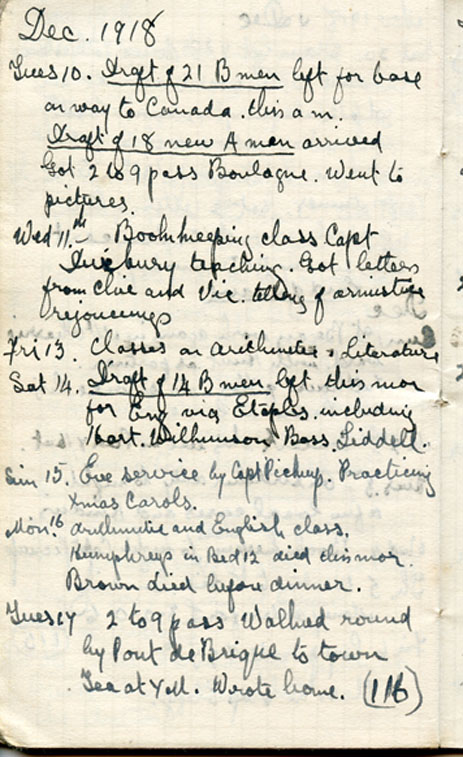 Dec. 1918
Tues 10. Draft of 21 B men left for base
on way to Canada. this a m.
Draft of 18 new A men arrived
Got 2 to 9 pass Boulogne. Went to
pictures.
Wed 11th – Bookkeeping class Capt
teaching. Got letters
from Clue and Vic. telling of armistice
rejoicings
Fri 13. Classes on arithmetic & Literature
Sat 14. Draft of 14 B men left this mor
for Eng via Etaples. including
Wilkinson Bass. Liddell.
Sun 15. Eve service by Capt Pickup. Practicing
Xmas Carols.
Mon. 16 arithmetic and English class.
Humphreys in Bed 12 died this mor.
Brown died before dinner.
Tues 17 2 to 9 pass Walked round
by Pont de Brique to town
Tea at Y M. Wrote home. (116)